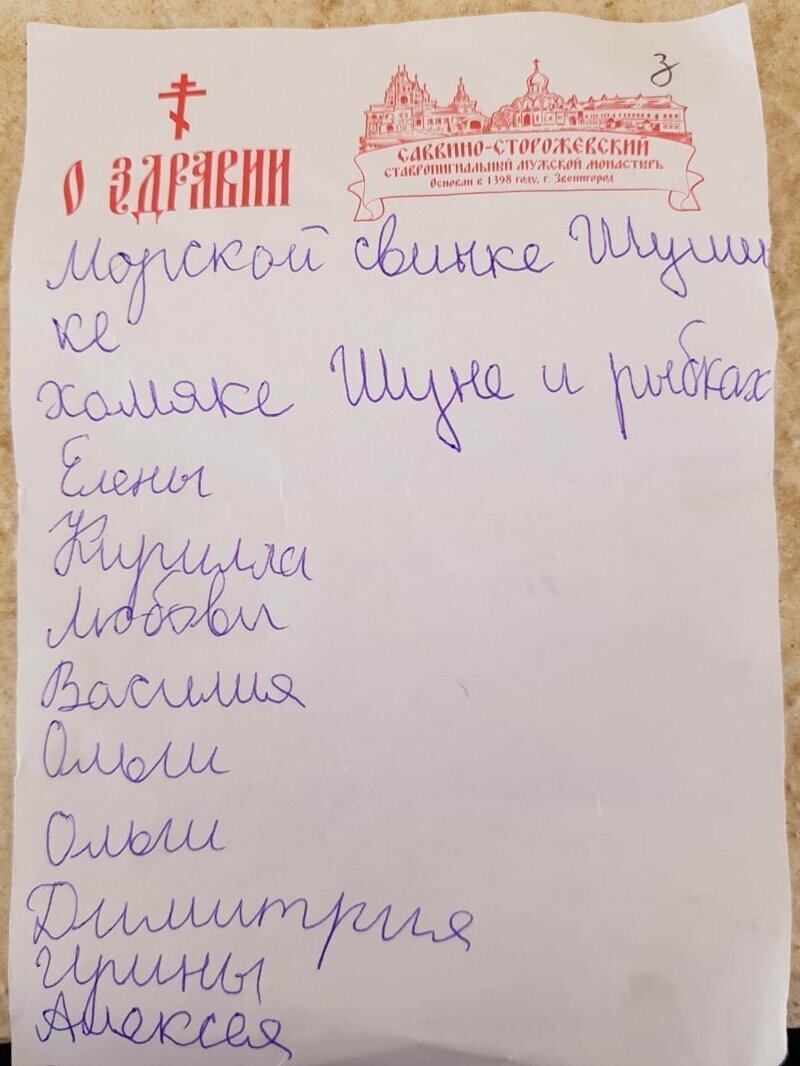 з
О ЗДРАВИИ
САВВИНО-СТОРОЖЕВСКИЙ
СТАВРОПИГИАЛЬНЫЙ МУЖСКОЙ МОНАСТЫРЬ
Основан в 1398 году, г. Звенигород
Морской свинке Шуши
ке
хомяке Шуне и рыбках
Елены
Кирилла
Любови
Василия
Ольги
Ольги
Димитрия
Ирины
Алексея